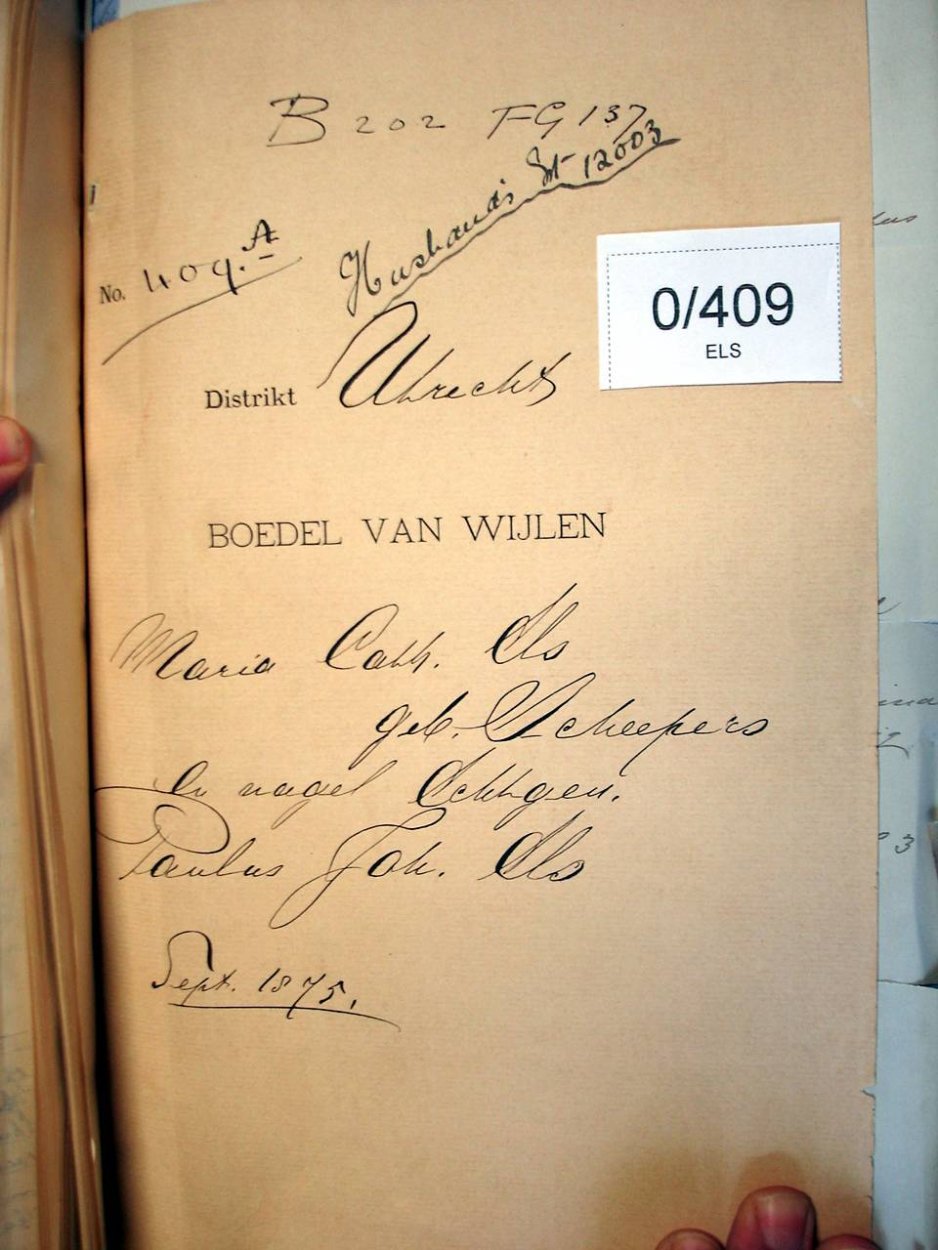 B 202 FG 137
Husband's Est 12003
No. 409.A
0/409
ELS
Distrikt Utrecht
BOEDEL VAN WIJLEN
Maria Cath. Els
geb. Scheepers
en nagel Echtgen.
Paulus Joh. Els
Sept. 1875.